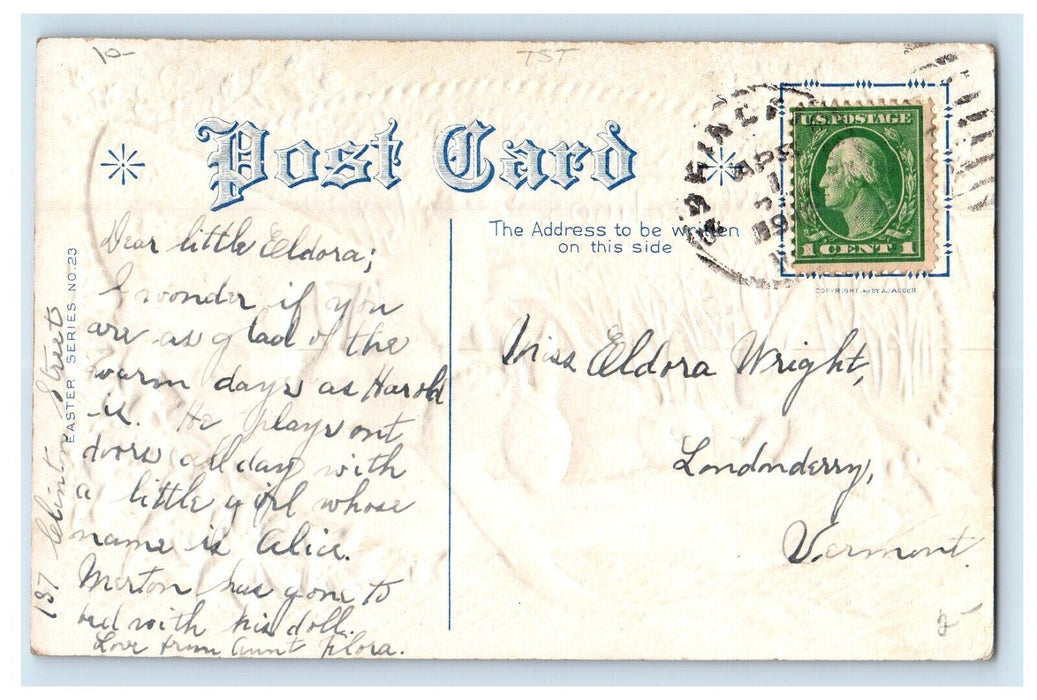 10-
TST
Post Card
U.S. POSTAGE
1 CENT 1
APR
The Address to be written
on this side
EASTER SERIES NO. 23
137 Clinton Street
Dear little Eldora;
I wonder if you
are as glad of the
warm days as Harold
is. He plays out
doors all day with
a little girl whose
name is Alice.
Merton has gone to
bed with his doll.
Love from Aunt Flora.
Miss Eldora Wright,
Londonderry,
Vermont.